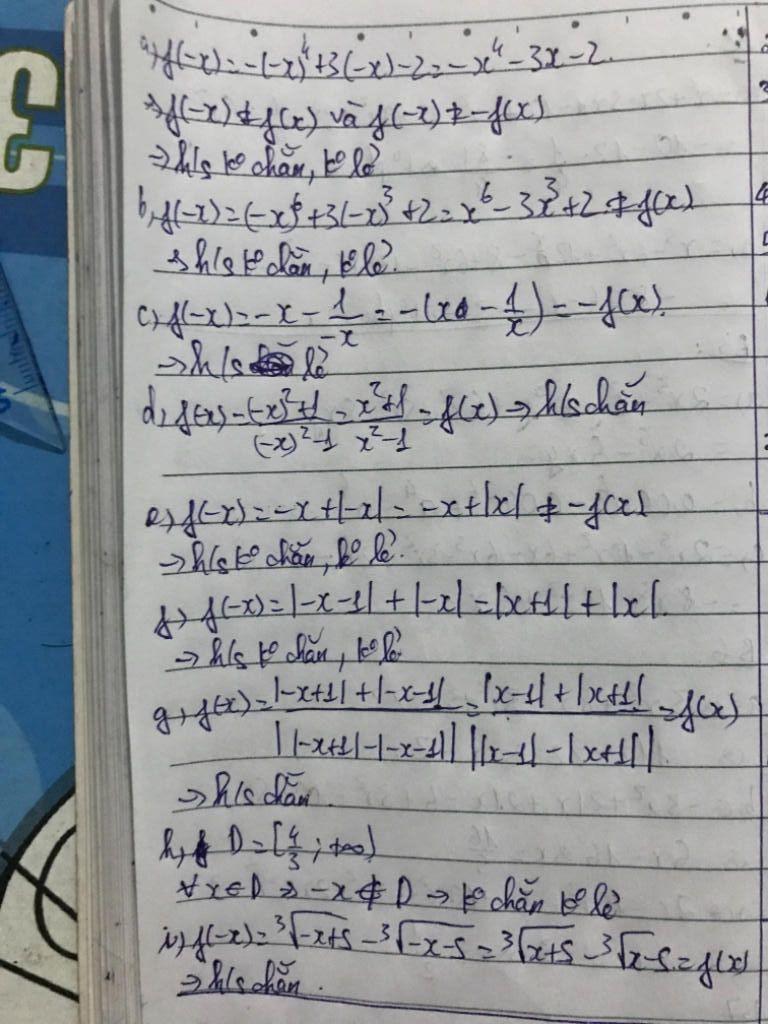 a, f(-x) = -(-x)⁴+3(-x)-2 = -x⁴-3x-2.
⇒ f(-x) ≠ f(x) và f(-x) ≠ -f(x)
⇒ h/s k° chẵn, k° lẻ
b, f(-x) = (-x)⁶+3(-x)³+2 = x⁶-3x³+2 ≠ f(x)
⇒ h/s k° chẵn, k° lẻ.
c, f(-x) = -x - 1/-x = -(x - 1/x) = -f(x).
→ h/s lẻ
d, f(-x) = (-x)²+1/(-x)²-1 = x²+1/x²-1 = f(x) → h/s chẵn
e, f(-x) = -x+|-x| = -x+|x| ≠ -f(x)
→ h/s k° chẵn, k° lẻ.
f, f(-x) = |-x-1| + |-x| = |x+1| + |x|.
→ h/s k° chẵn, k° lẻ
g, f(-x) = |-x+1|+|-x-1|/||-x+1|-|-x-1|| = |x-1|+|x+1|/||x-1|-|x+1|| = f(x)
→ h/s chẵn.
h, D = [4/3; +∞)
∀x∈D ⇒ -x ∉ D → k° chẵn k° lẻ
i, f(-x) = ³√-x+5 - ³√-x-5 = ³√x+5 - ³√x-5 = f(x)
⇒ h/s chẵn.